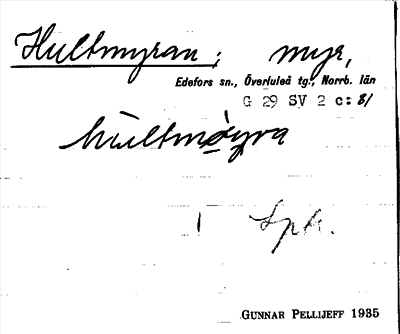 Hultmyran; myr,
Edefors sn., Överluleå tg., Norrb. län
G 29 SV 2 c: 81
hultmöyra
1 Spr.
GUNNAR PELLIJEFF 1935